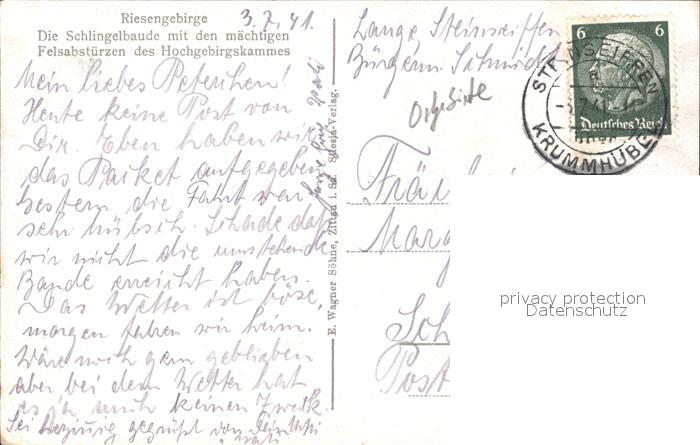 Riesengebirge
3.7.41.
Die Schlingelbaude mit den mächtigen
Felsabstürzen des Hochgebirgskammes
Mein liebes Peterchen!
Heute keine Post von
Dir. Eben haben wir
das Paket aufgegeben
Gestern die Fahrt war
sehr hübsch. Schade daß
wir nicht die umstehende
Baude erreicht haben.
Das Wetter ist böse,
morgen fahren wir heim.
Wäre noch gern geblieben
aber bei dem Wetter hat
es ja auch keinen Zweck
Sei herzinnig gegrüßt von
E. Wagner Söhne, Zittau i. Sa. Stiesia-Verlag.
Lange Steinseiffen
Bürgerm. Schmidt
6 6
Deutsches Reich
STEINSEIFFEN
KRUMMHÜBEL
Fräu
Marg
Sch
Post
privacy protection
Datenschutz